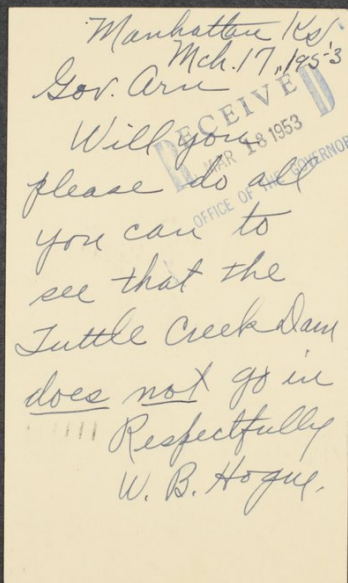 Manhattan Ks/
Mch. 17, 1953
Gov. Arn
RECEIVED
MAR 18 1953
OFFICE OF THE GOVERNOR
Will you
please do all
you can to
see that the
Tuttle Creek Dam
does not go in
Respectfully
W. B. Hogue.